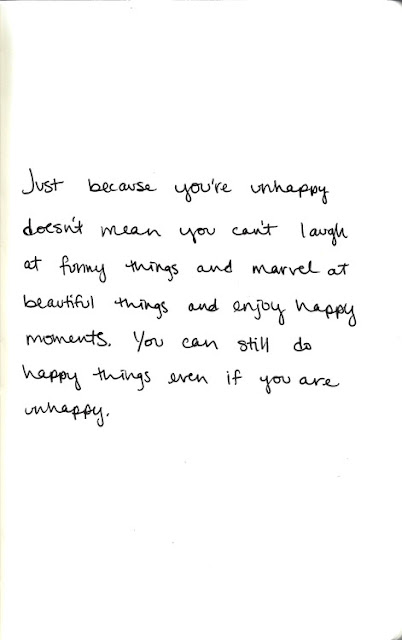 Just because you're unhappy
doesn't mean you can't laugh
at funny things and marvel at
beautiful things and enjoy happy
moments. You can still do
happy things even if you are
unhappy.